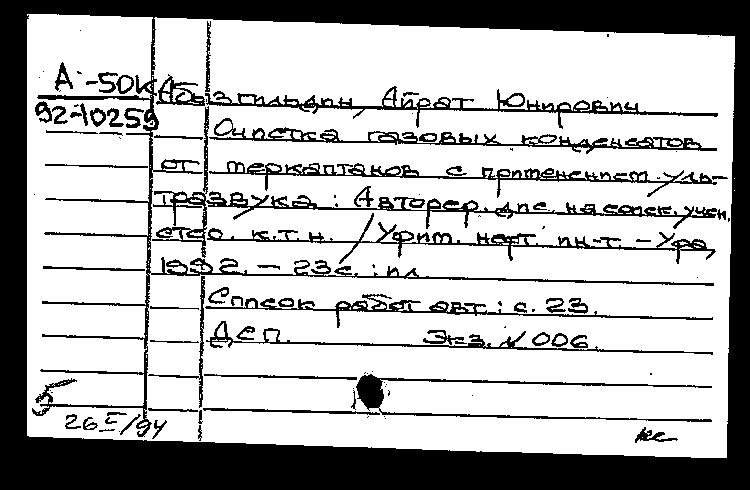 А-50К
92-10259
Абызгильдин, Айрат Юнирович
Очистка газовых конденсатов
от меркаптанов с применением уль-
тразвука : Автореф. дис. на соиск. учен.
степ. к.т.н. / Уфим. нефт. ин-т. – Уфа,
1992. – 23с. : ил.
Список работ авт.: с. 23.
ДСП. Экз. № 006.
5
26 I/94